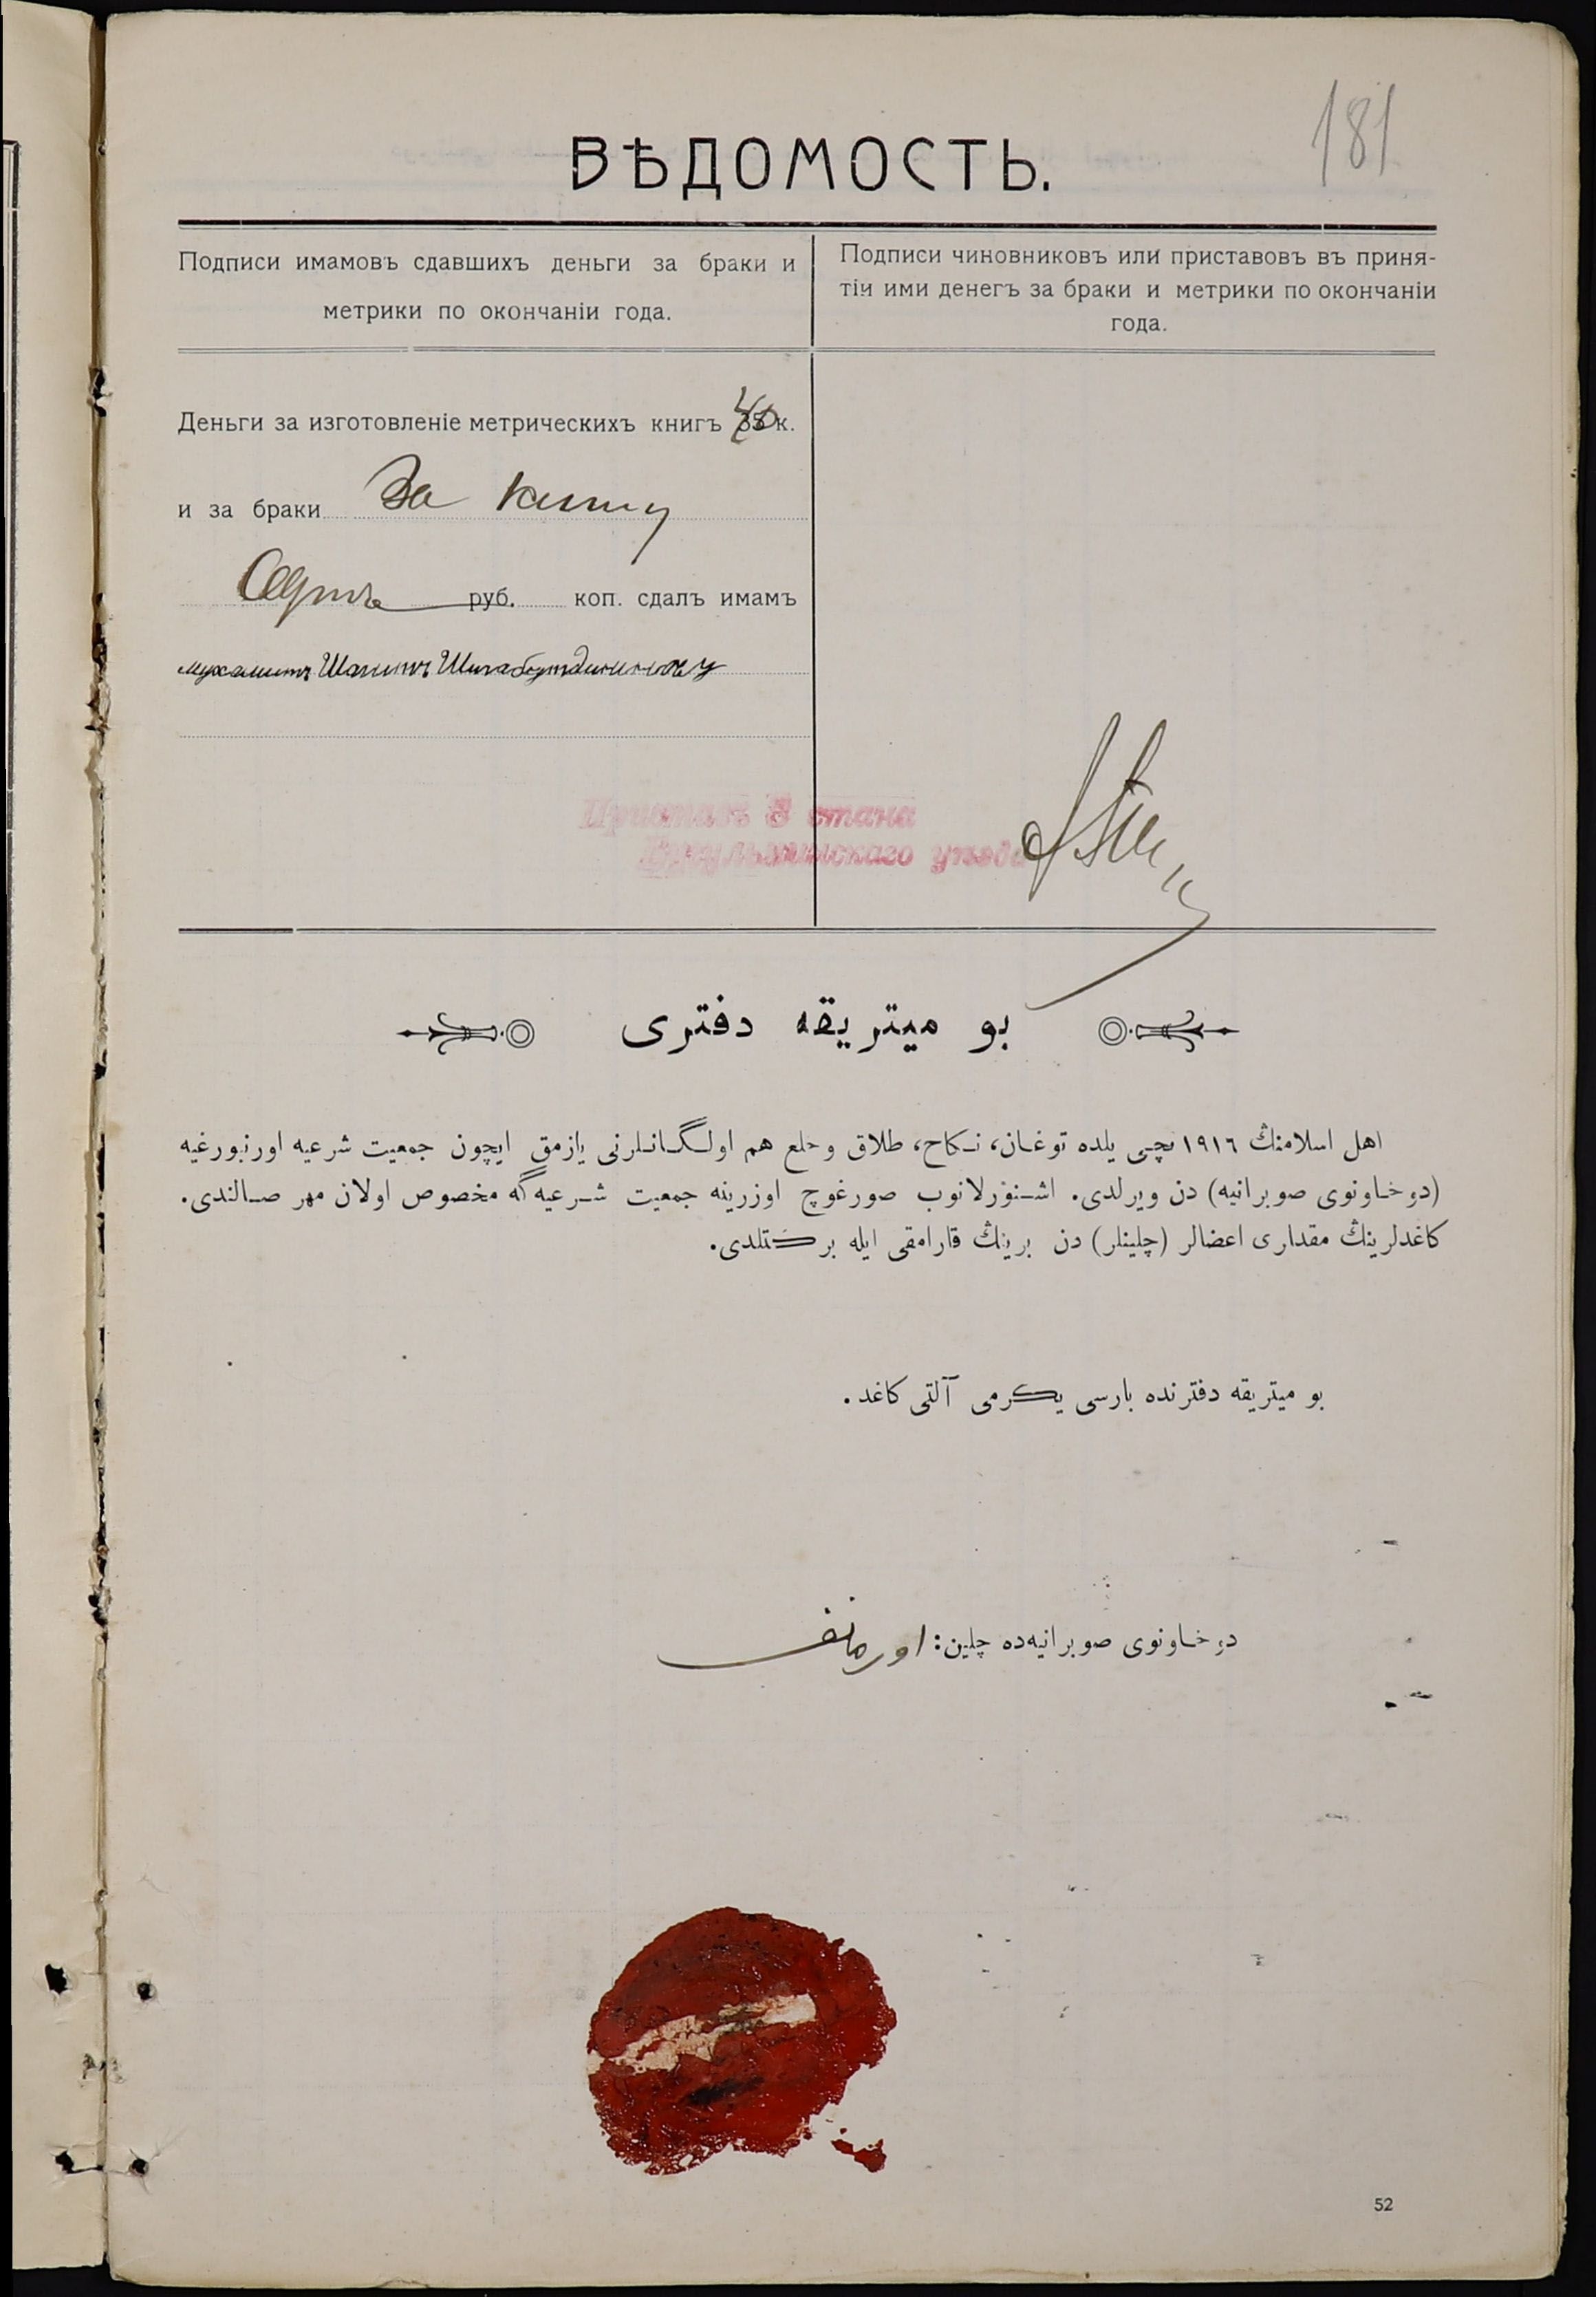 181
ВѢДОМОСТЬ.
Подписи имамовъ сдавшихъ деньги за браки и
метрики по окончаніи года.
Подписи чиновниковъ или приставовъ въ приня-
тіи ими денегъ за браки и метрики по окончаніи
года.
Деньги за изготовленіе метрическихъ книгъ 40 к.
и за браки За книгу
Одинъ руб. коп. сдалъ имамъ
Приставъ 3 стана
уѣзда
بو ميتريقه دفترى
اهل اسلامنڭ ١٩١٦ نچى يلده توغـان، نـكاح، طلاق وخلع هم اولـگـانـلرنى يازمق ايچون جمعيت شرعيه اورنبورغيه
(دوخـاونوى صوبرانيه) دن ويرلدى. اشـنۇرلانوب صورغوچ اوزرينه جمعيت شـرعيه گه مخصوص اولان مهر صـالندى.
كاغدلرينڭ مقدارى اعضالر (چلينلر) دن برينڭ قارامقى ايله بركتلدى.
بو ميتريقه دفترنده بارسى يكرمى آلتى كاغد.
دوخـاونوى صوبرانيه‌ده چلين:
52